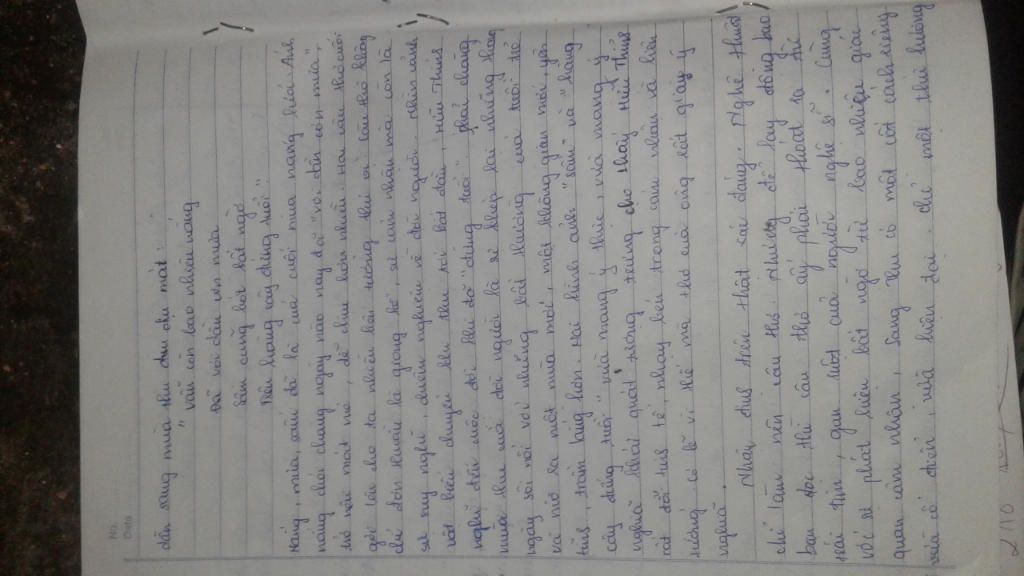 No.
Date
dần sang mùa thu dịu mát:
" Vẫn còn bao nhiêu nắng
Đã vơi dần cơn mưa
Sấm cũng bớt bất ngờ
Trên hàng cây đứng tuổi."
Nắng, mưa, sấm đó là của cuối mùa nắng hạ. Ánh
nắng chói chang ngày nào nay đã "vơi dần cơn mưa",
trở nên mát mẻ, dễ chịu hơn nhiều. Hai câu thơ cuối
gợi lên cho ta nhiều liên tưởng thú vị. Câu thơ không
chỉ đơn thuần là giọng kể, sự cảm nhận mà còn là
sự suy nghĩ, chiêm nghiệm về đời người. Nhìn cảnh
vật biến chuyển khi thu mới bắt đầu, Hữu Thỉnh
nghĩ đến cuộc đời khi đã "đứng tuổi". Phải chăng
mùa thu của đời người là sự khép lại những tháng
ngày sôi nổi với những bất thường của tuổi trẻ
và mở ra một mùa mới, một không gian mới, yên
tĩnh, trầm lắng hơn. Hai hình ảnh "sấm" và "hàng
cây đứng tuổi" vừa mang ý thực, vừa mang ý
nghĩa khái quát, tượng trưng cho thấy Hữu Thỉnh
rất đỗi tinh tế, nhạy bén trong cảm nhận và liên
tưởng. Có lẽ vì thế mà thơ của ông rất giàu ý
nghĩa.
Nhận định trên thật xác đáng. Nghệ thuật
chỉ làm nên câu thơ. Nhưng để lay động bao
bạn đọc thì câu thơ ấy phải thoát ra từ
trái tim, gan ruột của người nghệ sĩ. Cùng
với sự phát hiện bất ngờ từ bao nhiêu giác
quan cảm nhận, Sang thu có một cốt cách riêng
vừa cổ điển, vừa hiện đại. chỉ một thi hứng